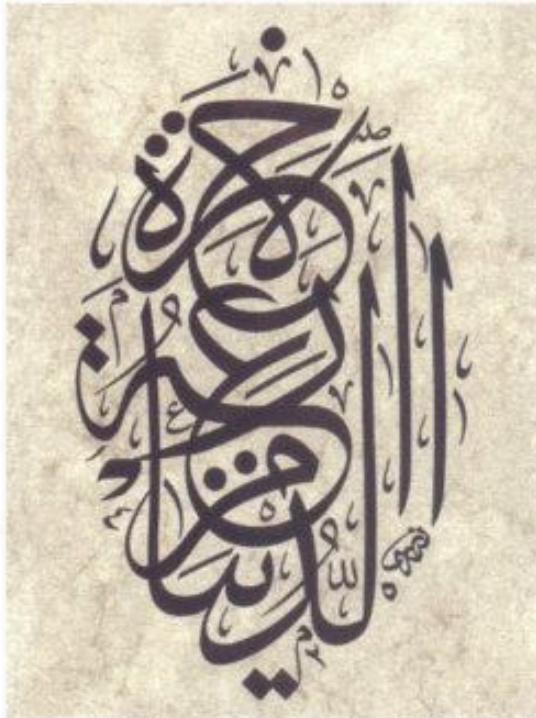 الدنيا مزرعة الآخرة